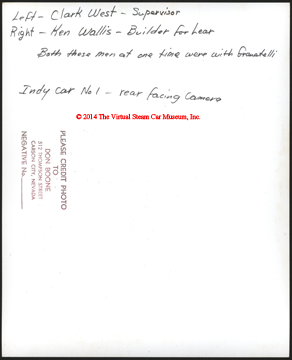 Left - Clark West - Supervisor
Right - Ken Wallis - Builder for Lear
Both these men at one time were with Granatelli
Indy Car No 1 - rear facing Camera
© 2014 The Virtual Steam Car Museum, Inc.
PLEASE CREDIT PHOTO
TO
DON BOONE
512 THOMPSON STREET
CARSON CITY, NEVADA
NEGATIVE No.